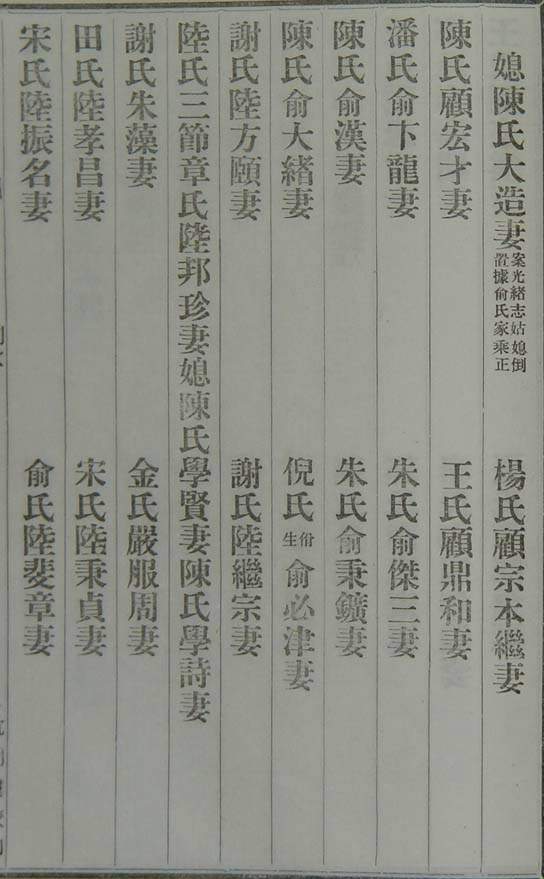 媳陳氏大造妻案光緒志姑媳倒置據俞氏家乘正 楊氏顧宗本繼妻
陳氏顧宏才妻 王氏顧鼎和妻
潘氏俞卞龍妻 朱氏俞傑三妻
陳氏俞漢妻 朱氏俞秉鑛妻
陳氏俞大緒妻 倪氏俞必津妻
謝氏陸方頤妻 謝氏陸繼宗妻
陸氏三節章氏陸邦珍妻媳陳氏學賢妻陳氏學詩妻
謝氏朱藻妻 金氏嚴服周妻
田氏陸孝昌妻 宋氏陸秉貞妻
宋氏陸振名妻 俞氏陸斐章妻